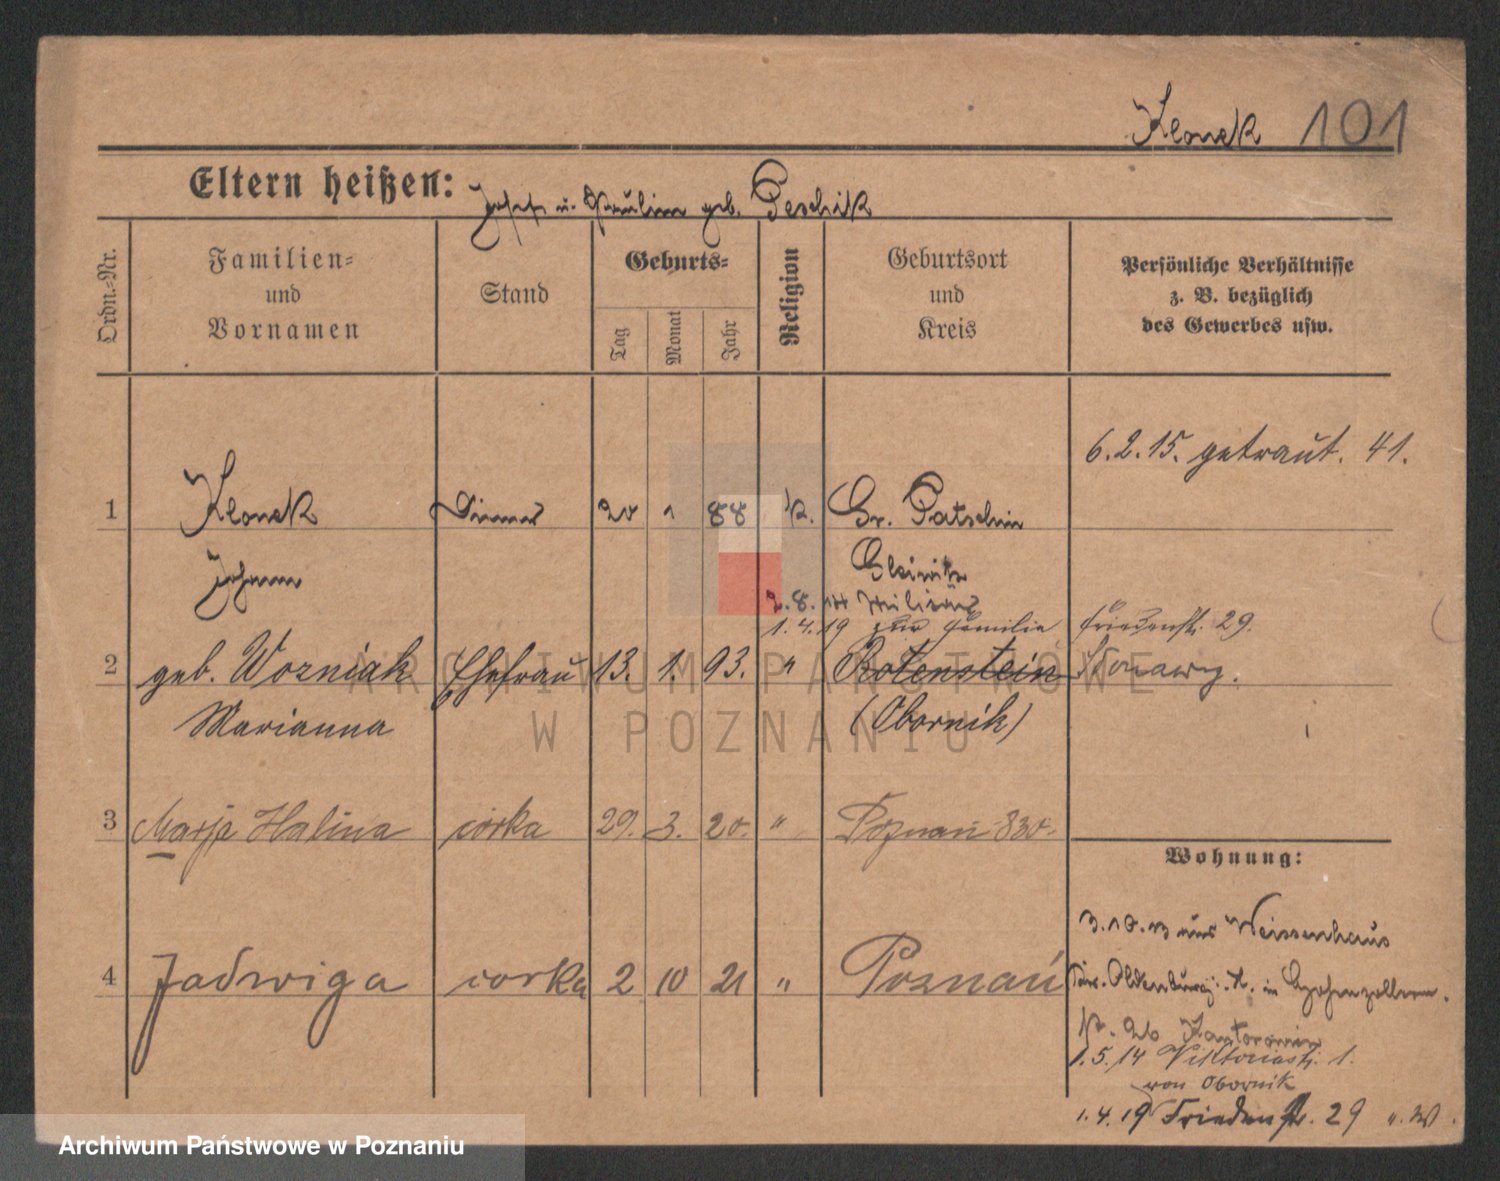 Klonek 101
Eltern heißen: Josef u. Paulina geb. Peschik
Ordn.-Nr.
Familien-
und
Vornamen
Stand
Geburts-
Tag
Monat
Jahr
Religion
Geburtsort
und
Kreis
Persönliche Verhältnisse
z. B. bezüglich
des Gewerbes usw.
6.2.15. getraut. 41.
1 Klonek Diener 20 1 88 k. Gr. Patschin
Johann Gleiwitz
2.8.14 Militär
1.4.19 zur Familie Friedenstr. 29.
2 geb. Wozniak Ehefrau 13. 1. 93. " Rotenstein
Marianna (Obornik)
3 Marja Halina córka 29. 3. 20. " Poznań
Wohnung:
3.10.13 aus Weissenhaus
4 Jadwiga corka 2 10 21 " Poznań
Kr. Oldenburg i. H. in Hohenzollern
1.5.14 Viktoriastr. 1.
von Obornik
1.4.19 Friedenstr. 29
ARCHIWUM PAŃSTWOWE
W POZNANIU
Archiwum Państwowe w Poznaniu